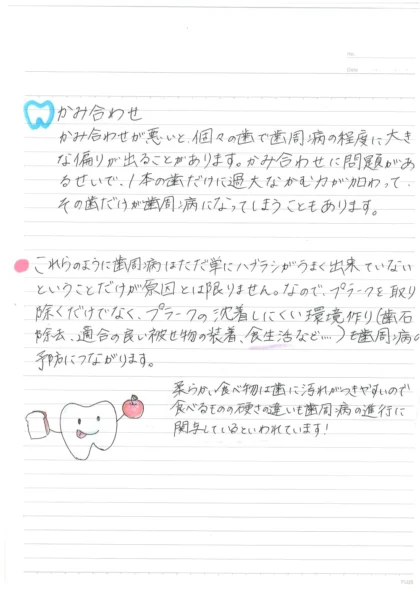 No.
Date
かみ合わせ
かみ合わせが悪いと、個々の歯で歯周病の程度に大き
な偏りが出ることがあります。かみ合わせに問題があ
るせいで、1本の歯だけに過大なかむ力が加わって、
その歯だけが歯周病になってしまうこともあります。
これらのように歯周病はただ単にハブラシがうまく出来ていない
ということだけが原因とは限りません。なので、プラークを取り
除くだけでなく、プラークの沈着しにくい環境作り(歯石
除去、適合の良い被せ物の装着、食生活など…)も歯周病の
予防につながります。
柔らかい食べ物は歯に汚れがつきやすいので
食べるものの硬さの違いも歯周病の進行に
関与しているといわれています!
PLUS